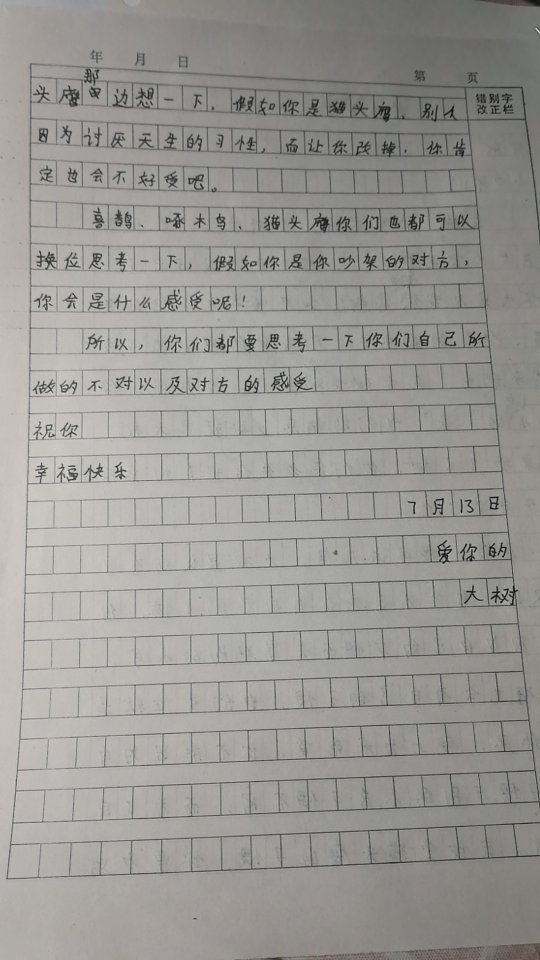 年 月 日
第 页
错别字
改正栏
那
头鹰边想一下，假如你是猫头鹰，别人
因为讨厌天生的习性，而让你改掉，你肯
定也会不好受吧。
喜鹊、啄木鸟、猫头鹰你们也都可以
换位思考一下，假如你是你吵架的对方，
你会是什么感受呢！
所以，你们都要思考一下你们自己所
做的不对以及对方的感受
祝你
幸福快乐
7月13日
爱你的
大树